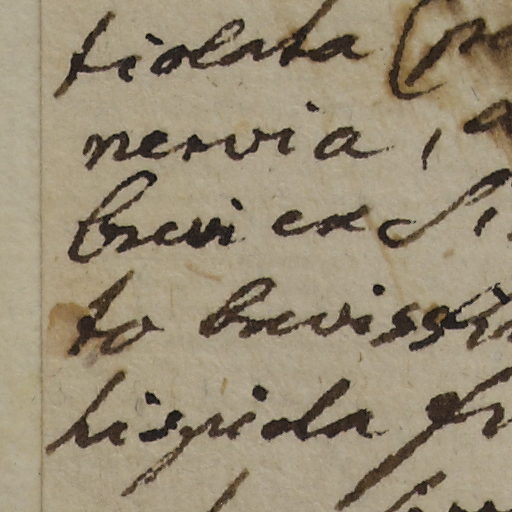 tiolata (
nervia,
brevi ex
to brevissi
hispida